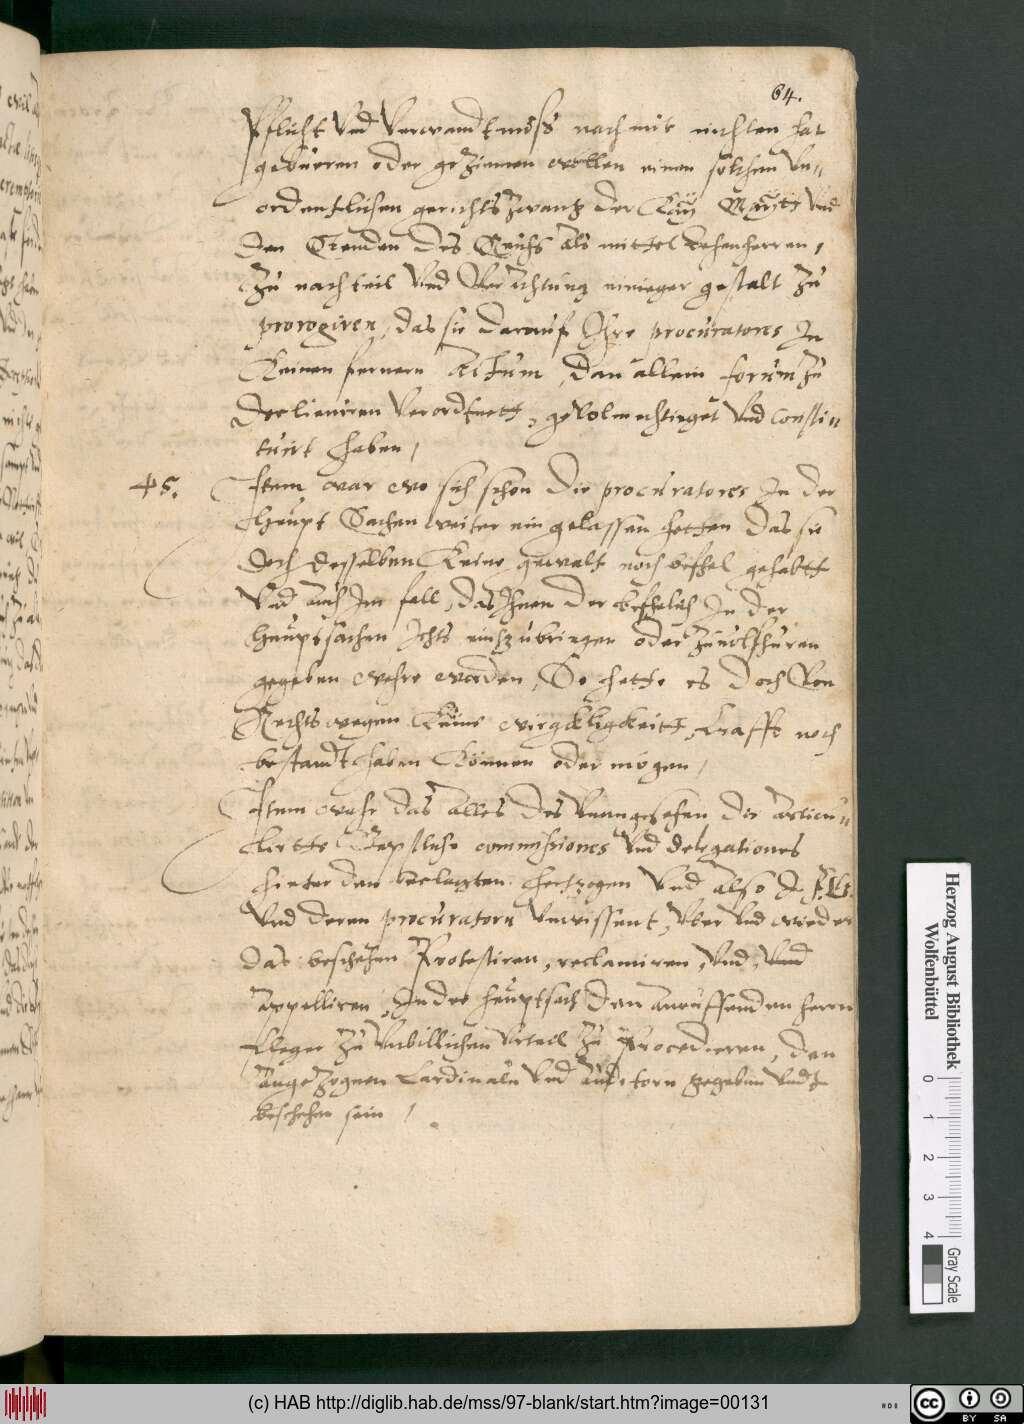 64.
Pflicht und verwandtnuss nach nit nichten hat
gebüeren oder geziemen wöllen einen solchen un„
ordentlichen gerichtszwang der Kay: Maytt und
den Stenden des Reichs als mittel Lehenherren,
zu nachteil und verachtung einieger gestalt zu
prorogiren, das sie darauf Ihre procuratores In
Keinen fernern Actum, dan allein forum zu
declieniren verordtnett, gevolmechtieget und consti„
tuirt haben,
45.
Item war wo sich schon die procuratores In der
Heupt Sachen weiter eingelassen hetten das sie
doch desselben Keine gewalt noch befhel gehabtt
und auch Im fall, das Ihnen der befhelich In der
Heuptsachen Ichts einzubringen oder zu
gegeben wehre worden, So hette es doch Von
Rechts wegen Keine wirgkligkeitt, Krafft noch
bestandt haben Können oder mögen,
Item wahr das Alles des unangesehen die Articu„
lirtte Bepstliche commissiones und delegationes
hinter den beclagten Hertzogen und also I. F. G.
und deren procuratorn unwissent, uber und wieder
das beschehen Protestiren, reclamiren, und
appelliren, In der Heuptsach den anruffenden herrn
Cleger zu unbillichen Urteil zu Procedieren, den
angezognen Cardinaln und Auditorn gegeben undt
beschehen sein,
Herzog August Bibliothek
Wolfenbüttel
0 1 2 3 4
Gray Scale
(c) HAB http://diglib.hab.de/mss/97-blank/start.htm?image=00131
cc BY SA